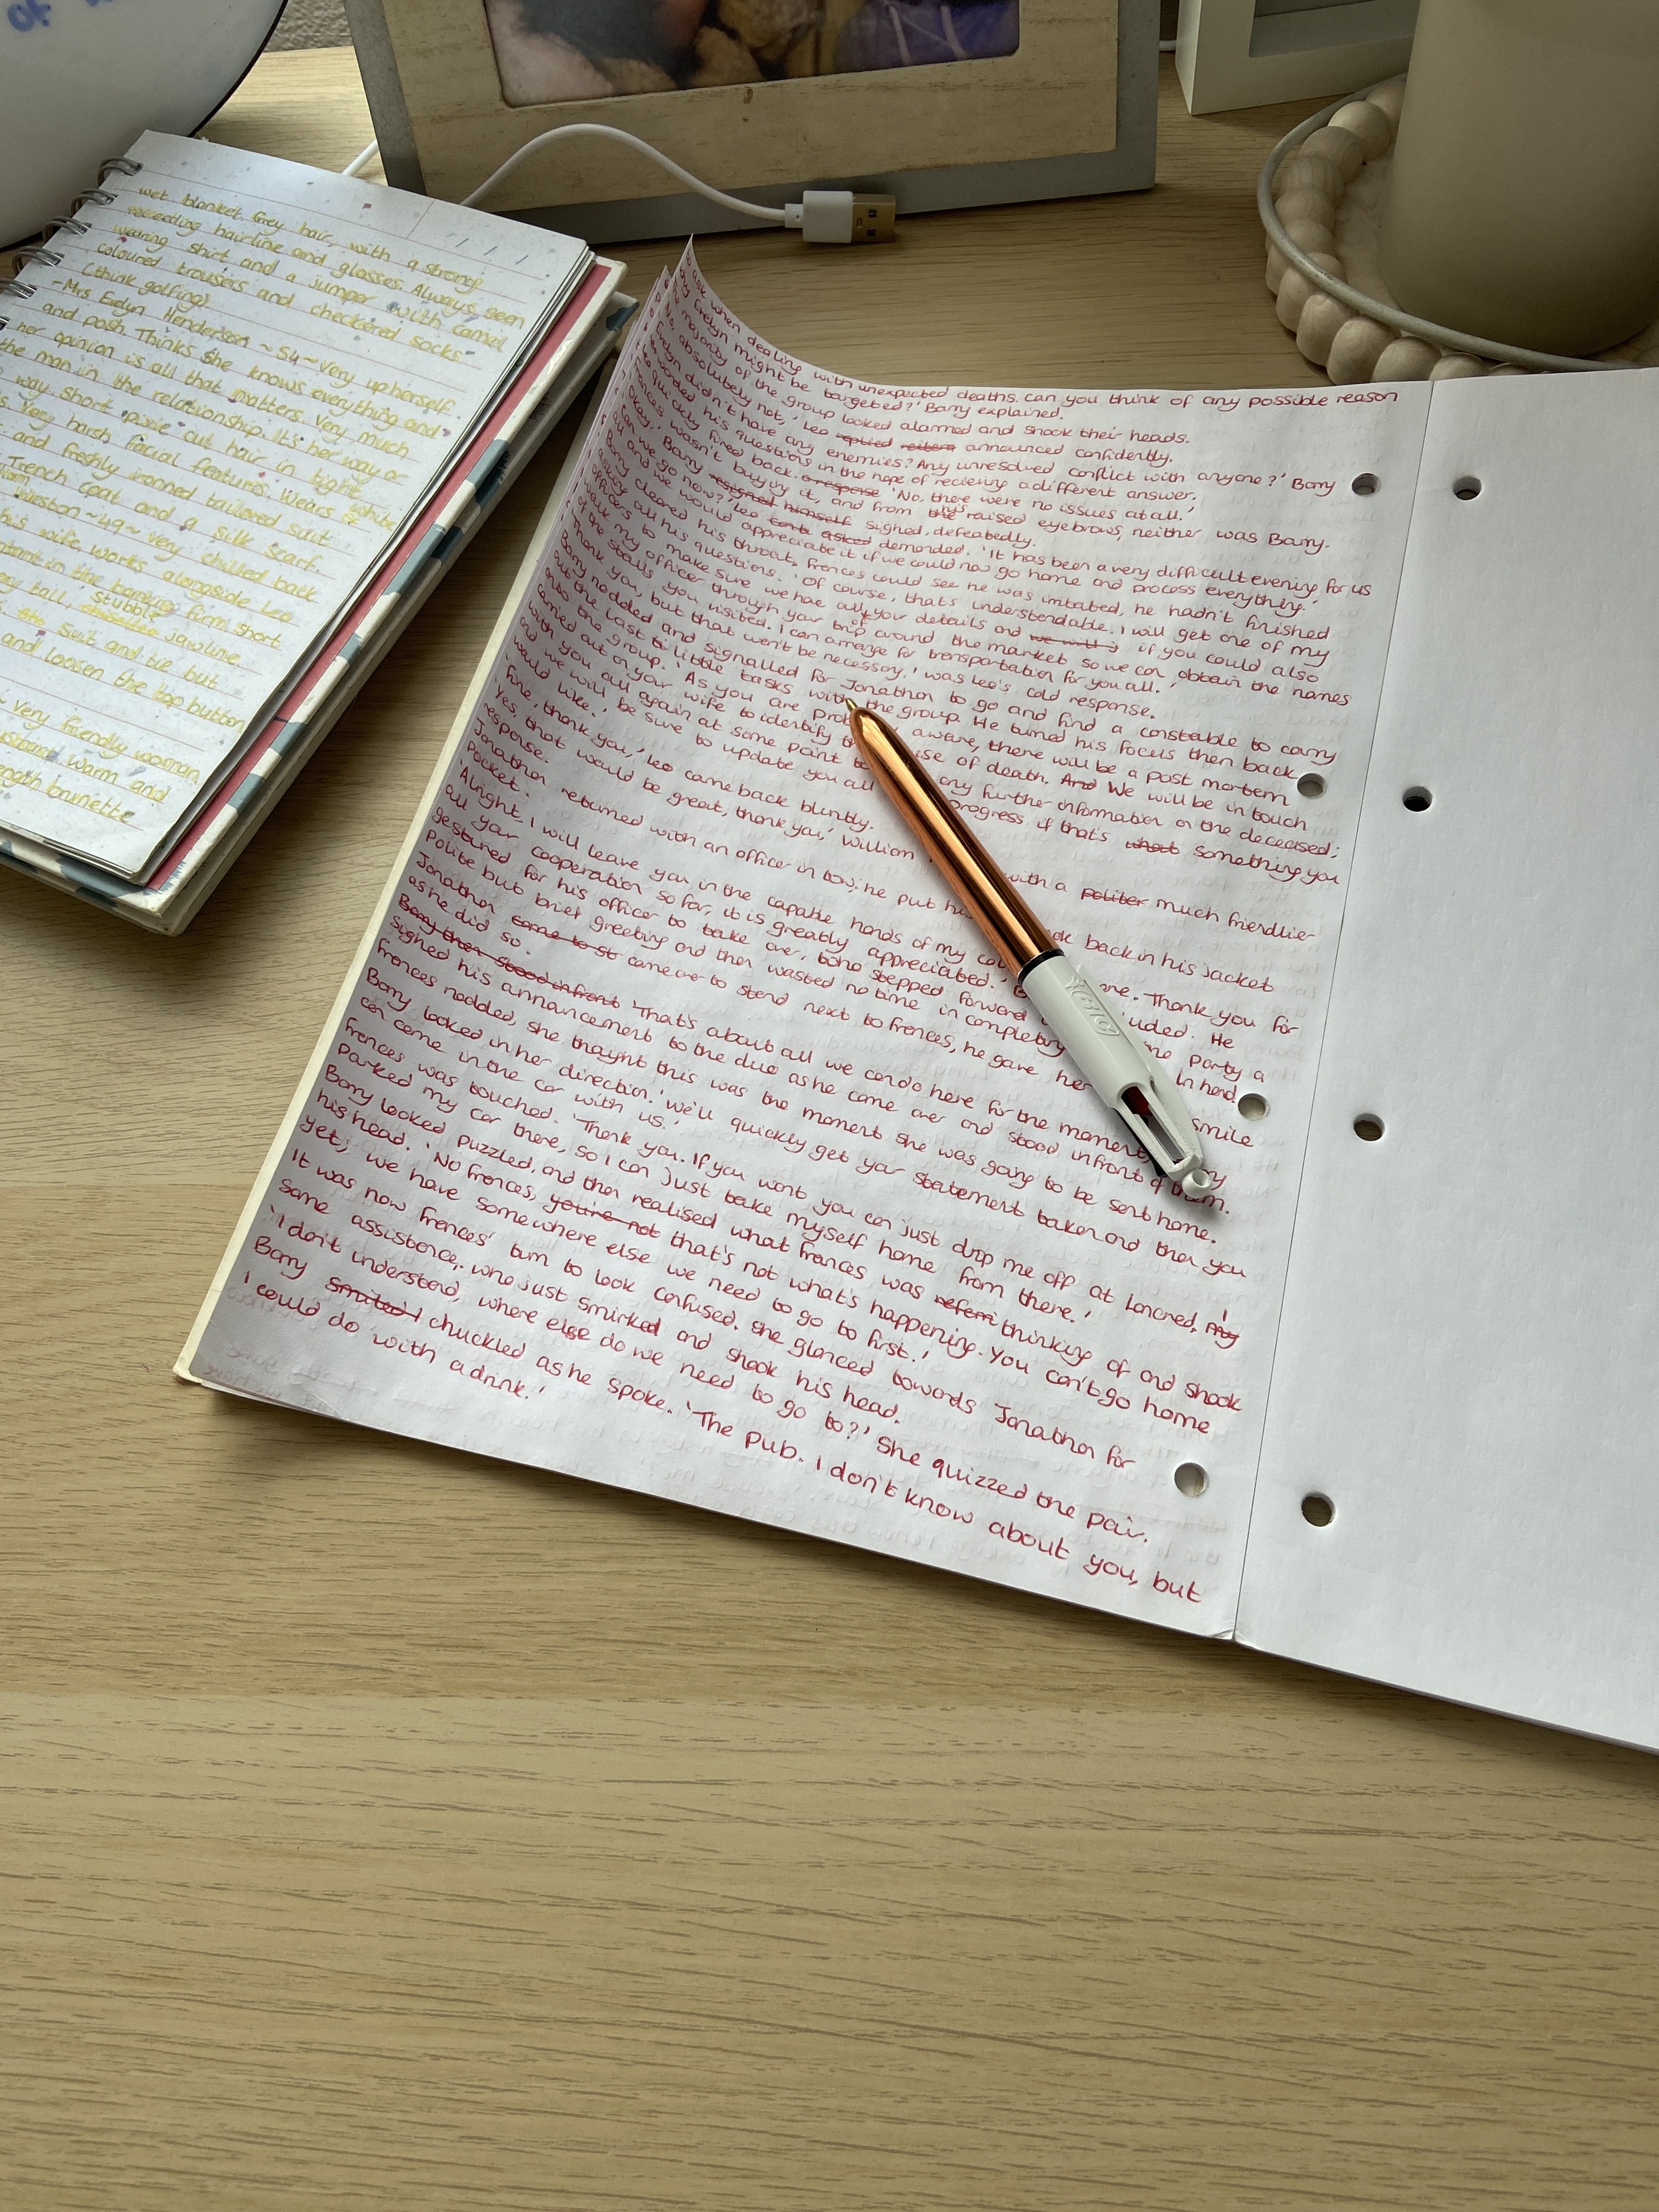 of
wet blanket. Grey hair, with a strong
receeding hairline and glasses. Always seen
wearing shirt and a jumper with camel
coloured trousers and checkered socks
(think golfing)
- Mrs Evelyn Henderson ~ 54 ~ very up herself
and posh. Thinks she knows everything and
her opinion is all that matters. Very much
the man in the relationship. It's her way or
way. Short pixie cut hair in tight
very harsh facial features. Wears white
and freshly ironed tailored suit
Trench coat and a silk scarf.
~ 49 ~ very chilled back
wife, works alongside Leo
in the banking firm. Short
tall, stubble jawline
suit and tie but
and loosen the top button
~ very friendly woman
warm and
length brunette
ask when dealing with unexpected deaths. Can you think of any possible reason
why Evelyn might be targeted?' Barry explained.
The majority of the group looked alarmed and shook their heads.
'No, absolutely not,' Leo replied reitera announced confidently.
'Evelyn didn't have any enemies? Any unresolved conflict with anyone?' Barry
reworded his questions in the hope of recieving a different answer.
Leo quickly fired back. a response 'No, there were no issues at all.'
Frances wasn't buying it, and from the raised eyebrows, neither was Barry.
'Okay,' Barry resigned himself sighed, defeatedly.
'Can we go now?,' Leo asked demanded. 'It has been a very difficult evening for us
all and we would appreciate it if we could now go home and process everything.'
Barry cleared his throat, Frances could see he was irritated, he hadn't finished
asking all his questions. 'Of course, that's understendable. I will get one of my
officers to make sure we hae all your details and we will if you could also
walk my officer through your trip around the market so we can obtain the names
of the stalls you visited. I can arrange for transportation for you all.'
'Thank you, but that won't be necessary,' was Leo's cold response.
Barry nodded and signalled for Jonathan to go and find a constable to carry
out the last little tasks with the group. He turned his focus then back
onto the group. 'As you are aware, there will be a post mortem
carried out on your wife to identify cause of death. And We will be in touch
with you all again at some point any further information on the deceased;
and we will be sure to update you all progress if that's what something you
would like.'
'Fine, thank you,' Leo came back bluntly.
'Yes, that would be great, thank you,' William with a politer much friendlier
response.
Jonathan returned with an officer in tow; he put his back in his jacket
pocket.
'Alright. I will leave you in the capable hands of my Thank you for
all your cooperation so far, it is greatly appreciated.' He
gestured for his officer to take over, who stepped forward party a
polite but brief greeting and then wasted no time in completing in hand.
Jonathan came to st came over to stend next to Frances, he gave her smile
as he did so.
Barry then stood infront 'That's about all we can do here for the moment,'
sighed his announcement to the duo as he came over and stood infront of them.
Frances nodded, she thought this was the moment she was going to be sent home.
Barry looked in her direction. 'We'll quickly get your statement taken and then you
can come in the car with us.'
Frances was touched. 'Thank you. If you want you can just drop me off at Loncred, my
parked my car there, so I can just take myself home from there.'
Barry looked puzzled, and then realised what Frances was referri thinking of and shook
his head. 'No Frances, you're not that's not what's happening. You can't go home
yet, we have somewhere else we need to go to first.'
It was now Frances' turn to look confused. She glanced towards Jonathan for
some assistance, who just smirked and shook his head.
'I don't understend, where else do we need to go to?' She quizzed the pair.
Barry smiled chuckled as he spoke. 'The pub. I don't know about you, but
I could do with a drink.'
BIC